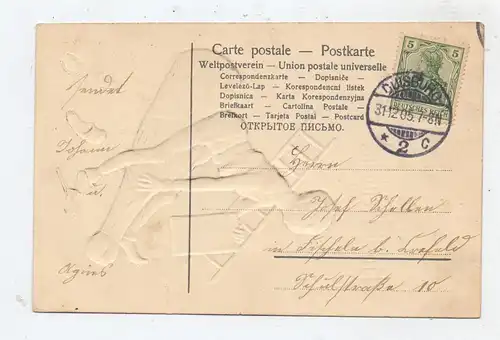 Carte postale — Postkarte
Weltpostverein — Union postale universelle
Correspondenzkarte — Dopisnice —
Levelező-Lap — Korespondencní lístek
Dopisnica — Karta Korespondencyjna
Briefkaart — Cartolina Postale —
Brefkort — Tarjeta Postal — Postcard
ОТКРЫТОЕ ПИСЬМО.
5 5
DEUTSCHES REICH
DUISBURG
31.12.05.7-8N
* 2 c
Sendet
Johann
u.
Agnes
Herrn
Josef Schellen
in Fischeln b. Krefeld
Schulstraße 10